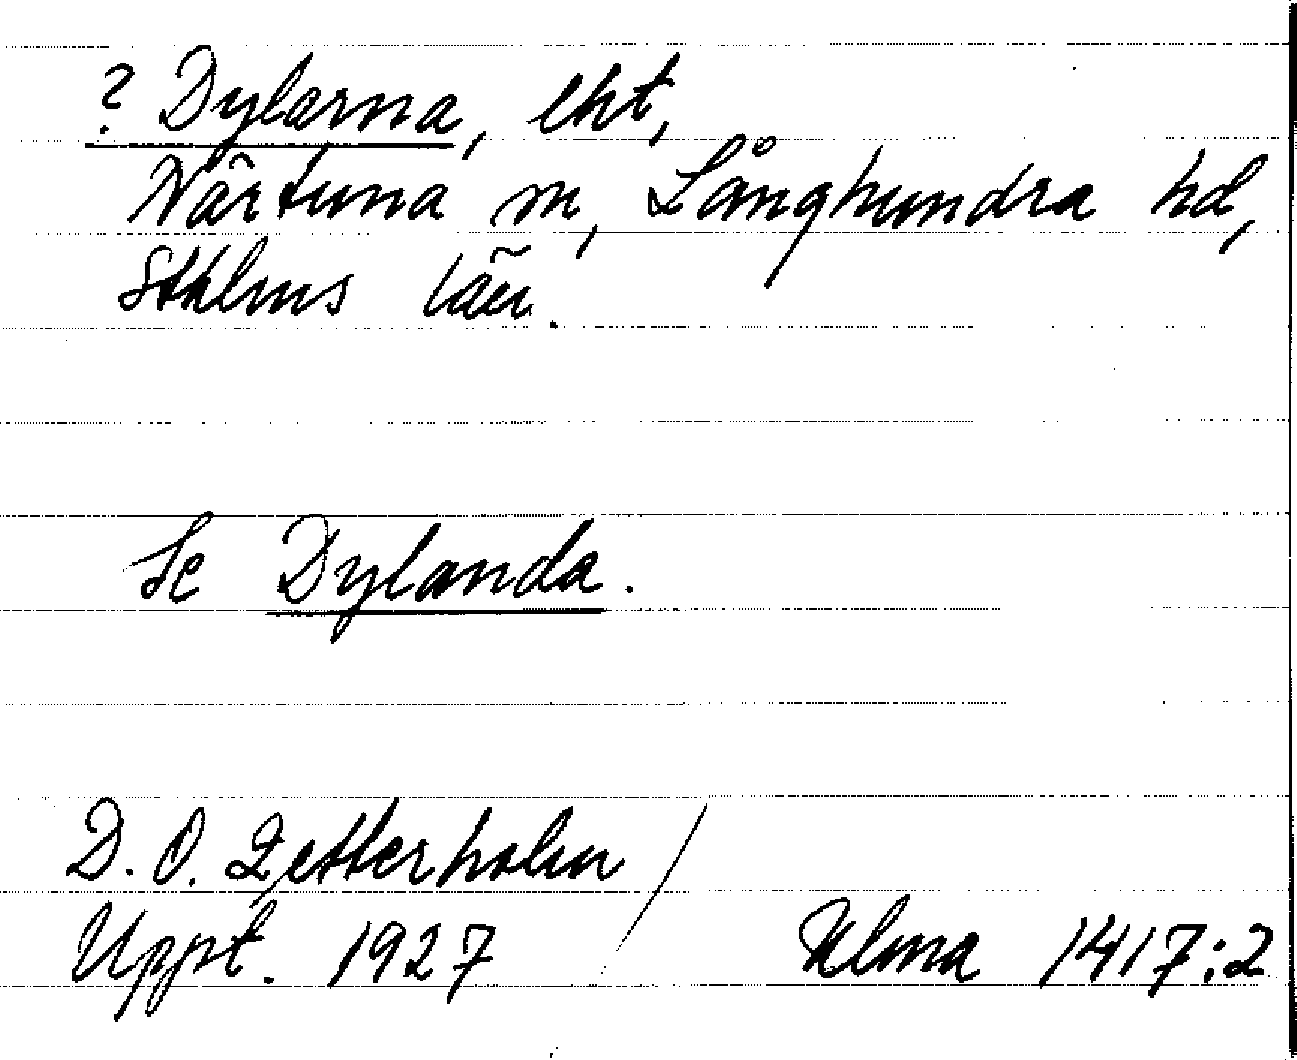 ? Dylarna, eht,
Närtuna sn, Långhundra hd,
Sthlms län.
Se Dylanda.
D. O. Zetterholm /
Uppt. 1927 Ulma 1417:2